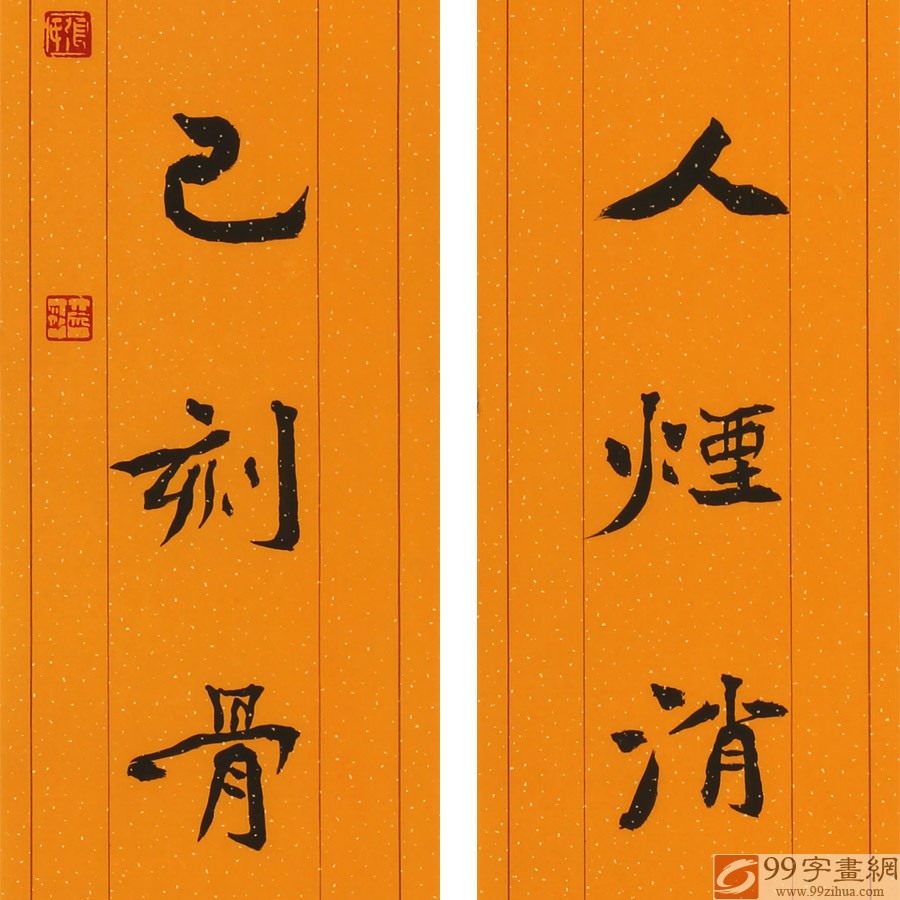 人煙消
已刻骨
99字畫網
www.99zihua.com